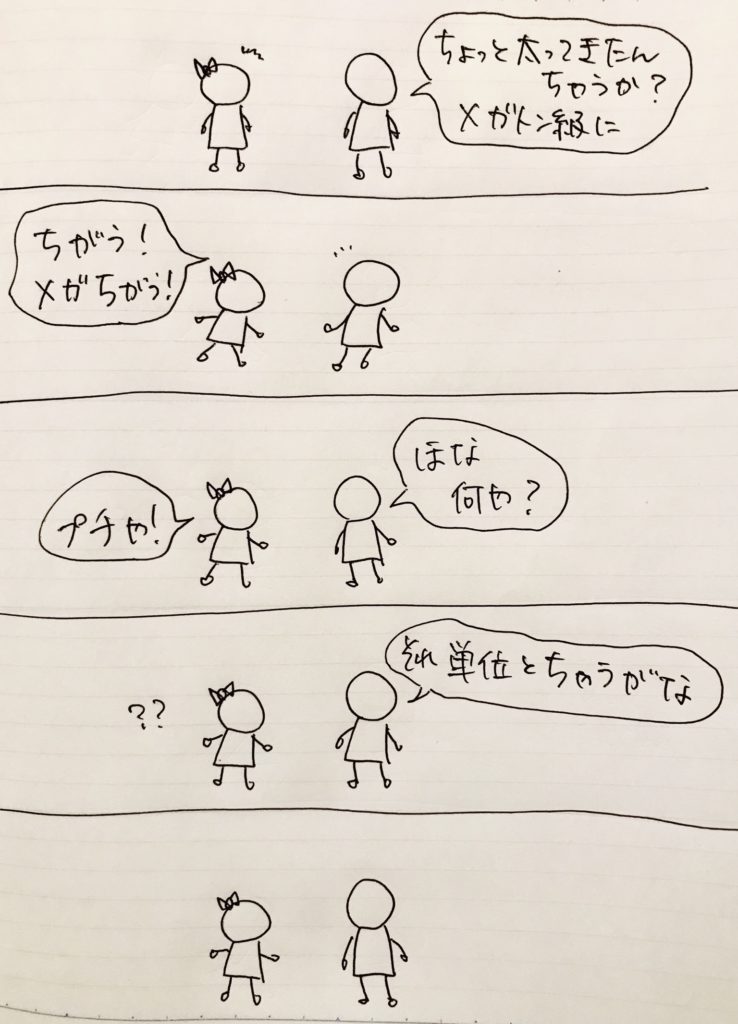 ちょっと太ってきたん
ちゃうか？
メガトン級に
ちがう！
メガちがう！
ほな
何や？
プチや！
それ単位とちゃうがな
？？